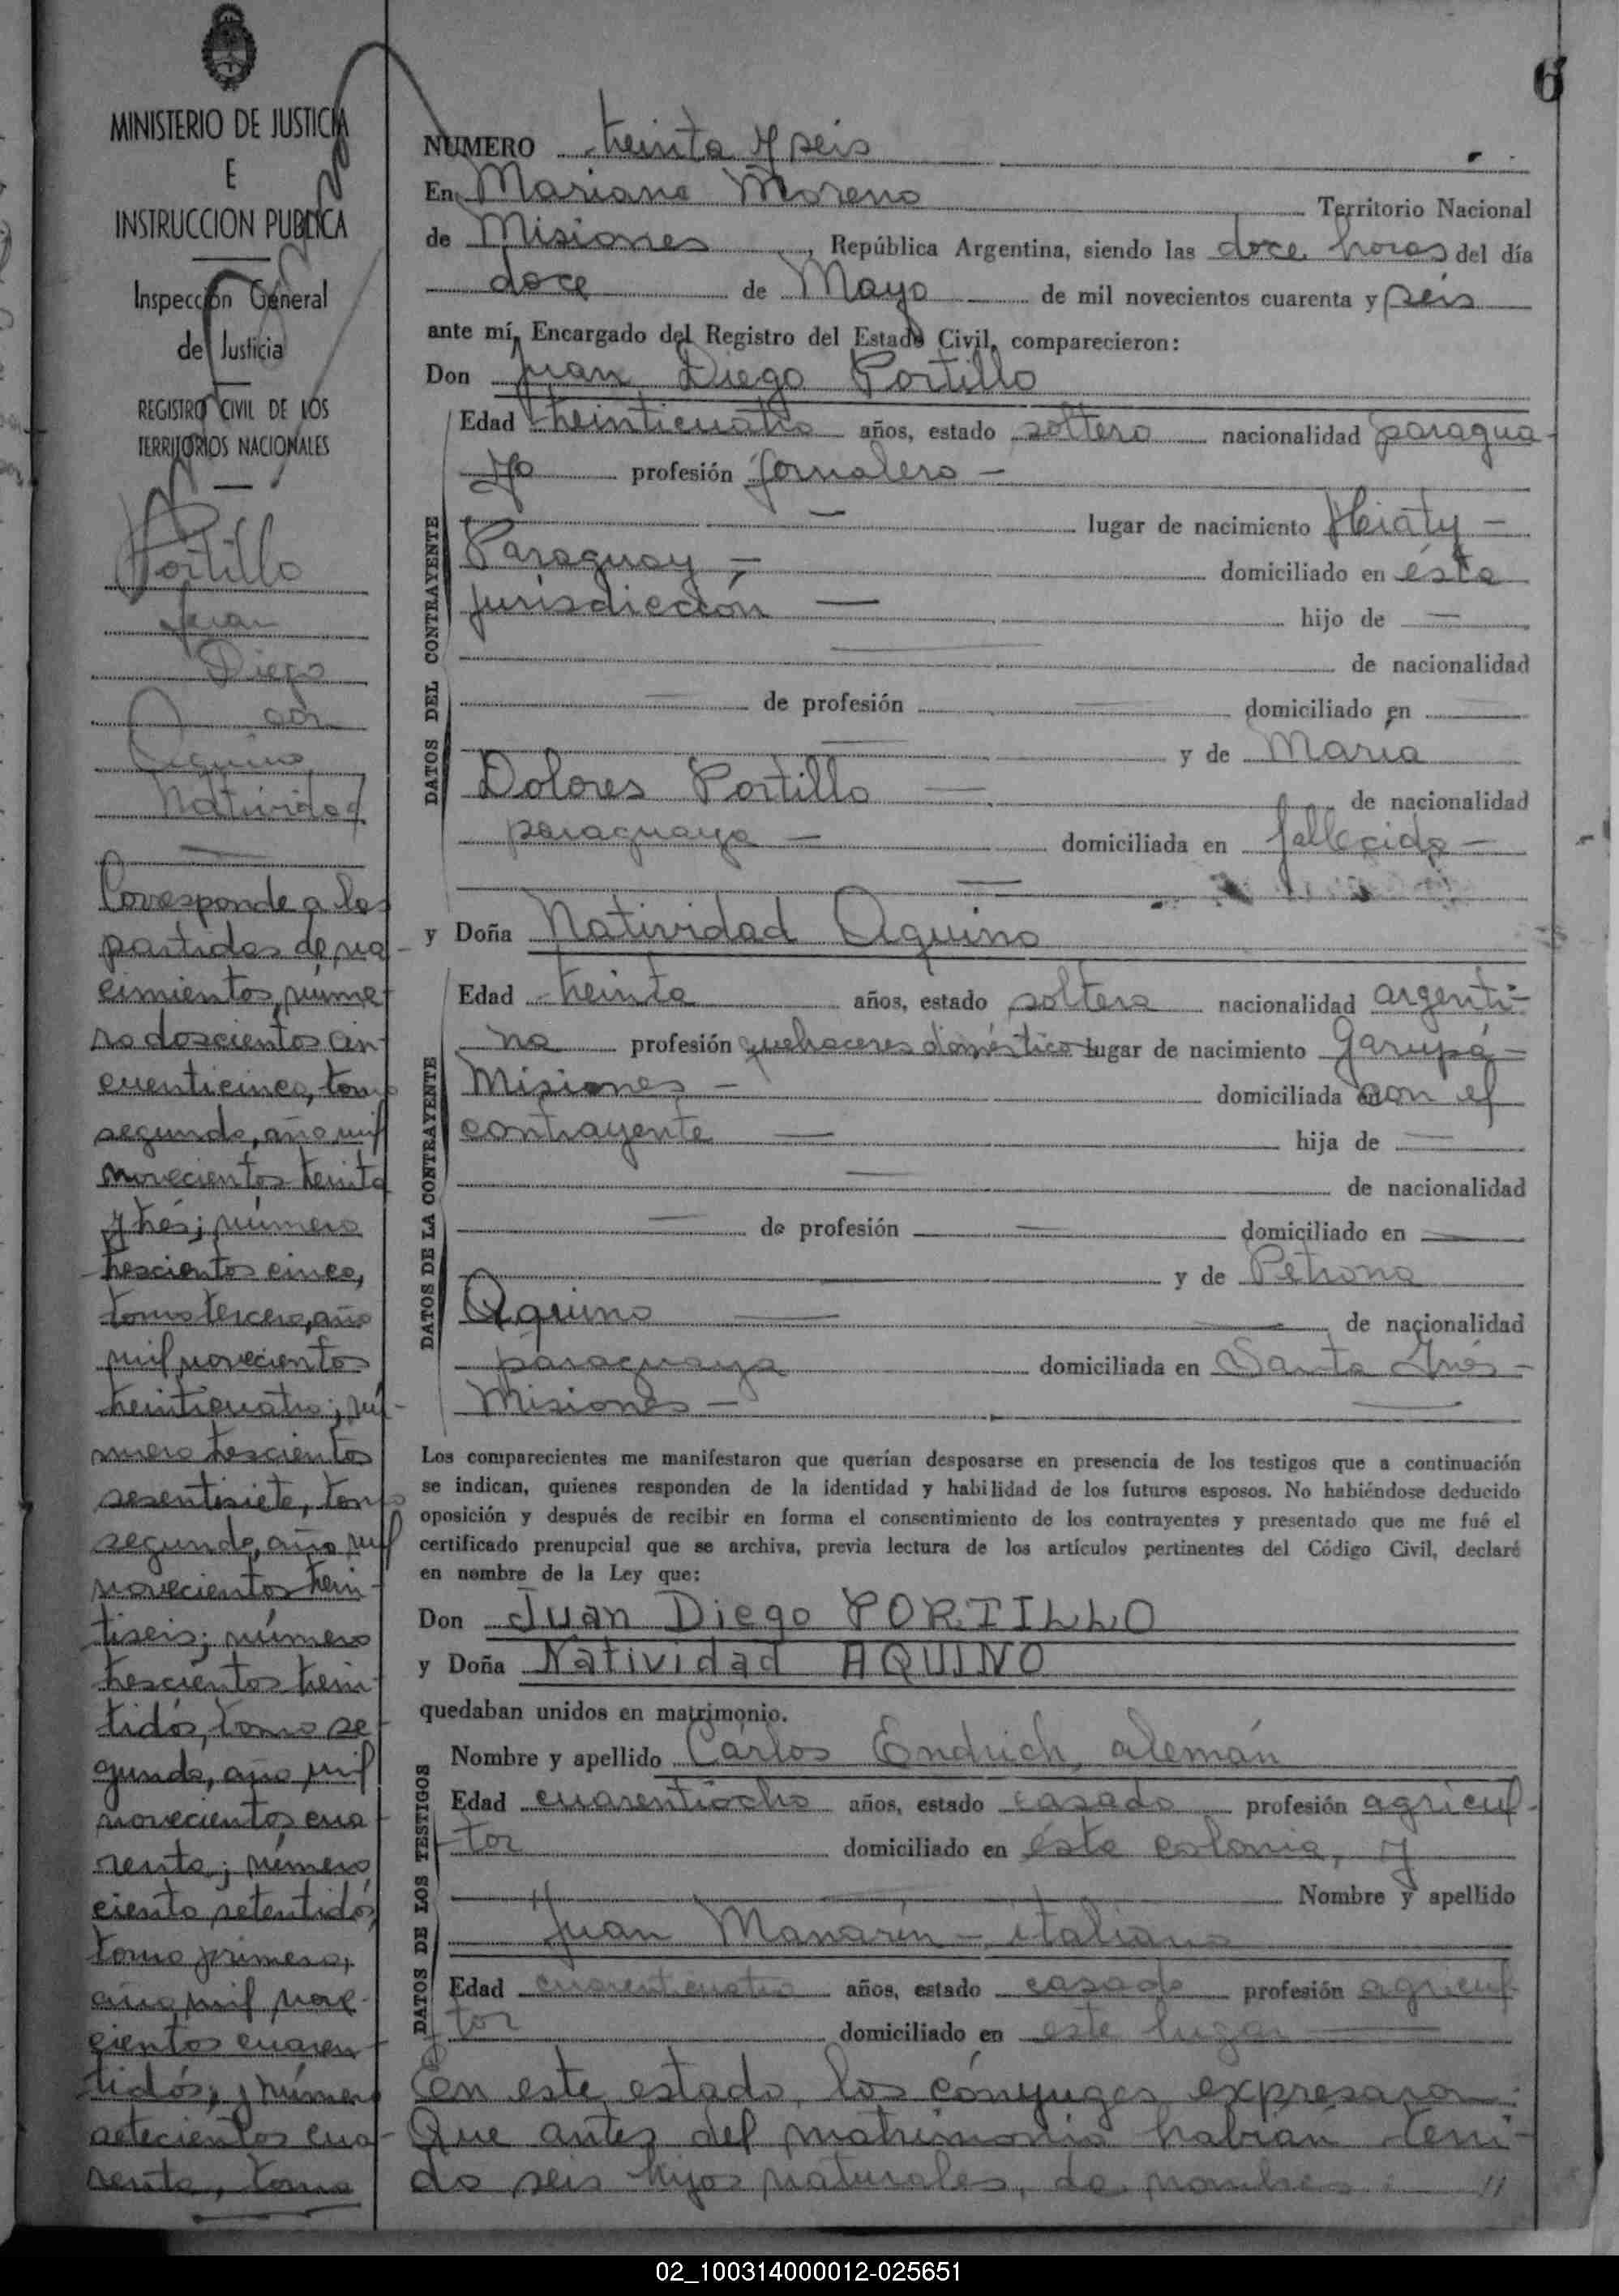 6
MINISTERIO DE JUSTICIA
E
INSTRUCCION PUBLICA
Inspección General
de Justicia
REGISTRO CIVIL DE LOS
TERRITORIOS NACIONALES
Portillo
Juan
Diego
con
Aquino
Natividad
Corresponde a las
partidas de na-
cimientos, núme-
ro doscientos cin-
cuenticinco, tomo
segundo, año mil
novecientos treinta
y tres; número
trescientos cinco,
tomo tercero, año
mil novecientos
treinticuatro; nú-
mero trescientos
sesentisiete, tomo
segundo, año mil
novecientos trein-
tiseis; número
trescientos trein-
tidós, tomo se-
gundo, año mil
novecientos cua-
renta; número
ciento setentidós,
tomo primero,
año mil nove-
cientos cuaren-
tidós; y número
setecientos cua-
renta, tomo
NUMERO treinta y seis
En Mariano Moreno Territorio Nacional
de Misiones, República Argentina, siendo las doce horas del día
doce de Mayo de mil novecientos cuarenta y seis
ante mí, Encargado del Registro del Estado Civil, comparecieron:
Don Juan Diego Portillo
DATOS DEL CONTRAYENTE
Edad treinticuatro años, estado soltero nacionalidad paragua-
yo profesión jornalero —
— lugar de nacimiento Hiaty —
Paraguay, — domiciliado en ésta
jurisdicción — hijo de —
— de nacionalidad
— de profesión — domiciliado en —
— y de María
Dolores Portillo — de nacionalidad
paraguaya — domiciliada en fallecida —
—
y Doña Natividad Aquino
DATOS DE LA CONTRAYENTE
Edad treinta años, estado soltera nacionalidad argenti-
na profesión quehaceres doméstico lugar de nacimiento Garupá —
Misiones — domiciliada con el
contrayente — hija de —
— de nacionalidad
— de profesión — domiciliado en —
— y de Petrona
Aquino — de nacionalidad
paraguaya domiciliada en Santa Inés —
Misiones —
Los comparecientes me manifestaron que querían desposarse en presencia de los testigos que a continuación
se indican, quienes responden de la identidad y habilidad de los futuros esposos. No habiéndose deducido
oposición y después de recibir en forma el consentimiento de los contrayentes y presentado que me fué el
certificado prenupcial que se archiva, previa lectura de los artículos pertinentes del Código Civil, declaré
en nombre de la Ley que:
Don Juan Diego PORTILLO
y Doña Natividad AQUINO
quedaban unidos en matrimonio.
DATOS DE LOS TESTIGOS
Nombre y apellido Carlos Endrich, alemán
Edad cuarentiocho años, estado casado profesión agricul-
tor domiciliado en ésta colonia, y
— Nombre y apellido
Juan Manarín — italiano
Edad cuarenticuatro años, estado casado profesión agricul-
tor domiciliado en este lugar —
En este estado, los cónyuges expresaron:
Que antes del matrimonio habían teni-
do seis hijos naturales, de nombres: — "
02_100314000012-025651